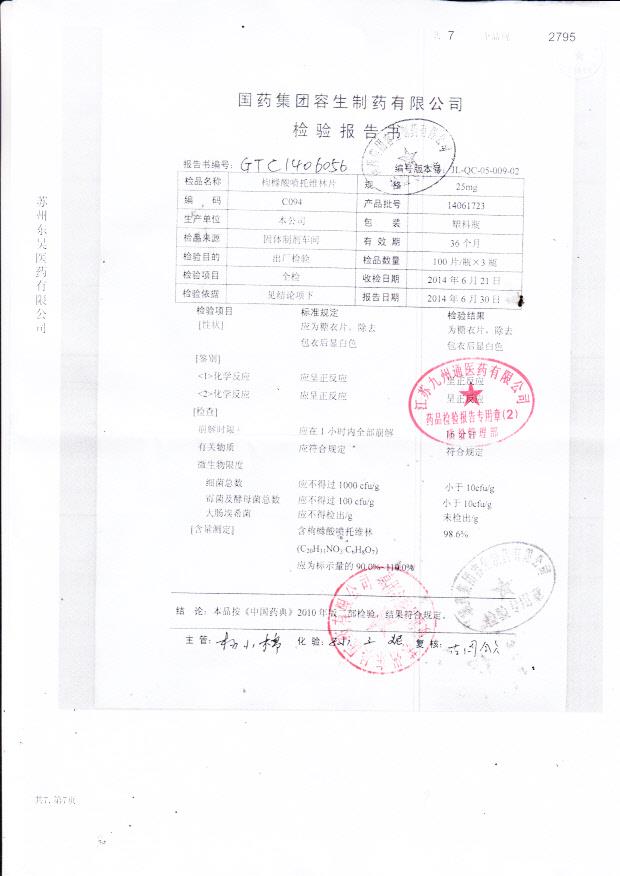 共 7
2795
国药集团容生制药有限公司
检验报告书
报告书编号：GTC1406056 编号版本号：JL-QC-05-009-02
检品名称 枸橼酸喷托维林片 规 格 25mg
编 码 C094 产品批号 14061723
生产单位 本公司 包 装 塑料瓶
检品来源 固体制剂车间 有 效 期 36个月
检验目的 出厂检验 检品数量 100片/瓶×3瓶
检验项目 全检 收检日期 2014年6月21日
检验依据 见结论项下 报告日期 2014年6月30日
检验项目 标准规定 检验结果
[性状] 应为糖衣片，除去 为糖衣片，除去
包衣后显白色 包衣后显白色
[鉴别]
<1>化学反应 应呈正反应 呈正反应
<2>化学反应 应呈正反应 呈正反应
[检查]
崩解时限 应在1小时内全部崩解
有关物质 应符合规定 符合规定
微生物限度
细菌总数 应不得过1000 cfu/g 小于10cfu/g
霉菌及酵母菌总数 应不得过100 cfu/g 小于10cfu/g
大肠埃希菌 应不得检出/g 未检出/g
[含量测定] 含枸橼酸喷托维林 98.6%
(C20H31NO3·C6H8O7)
应为标示量的90.0%-110.0%
江苏九州通医药有限公司
药品检验报告专用章(2)
质份管理部
结 论：本品按《中国药典》2010年版二部检验，结果符合规定。
主 管： 化 验： 复 核：
苏州东吴医药有限公司
共7, 第7页